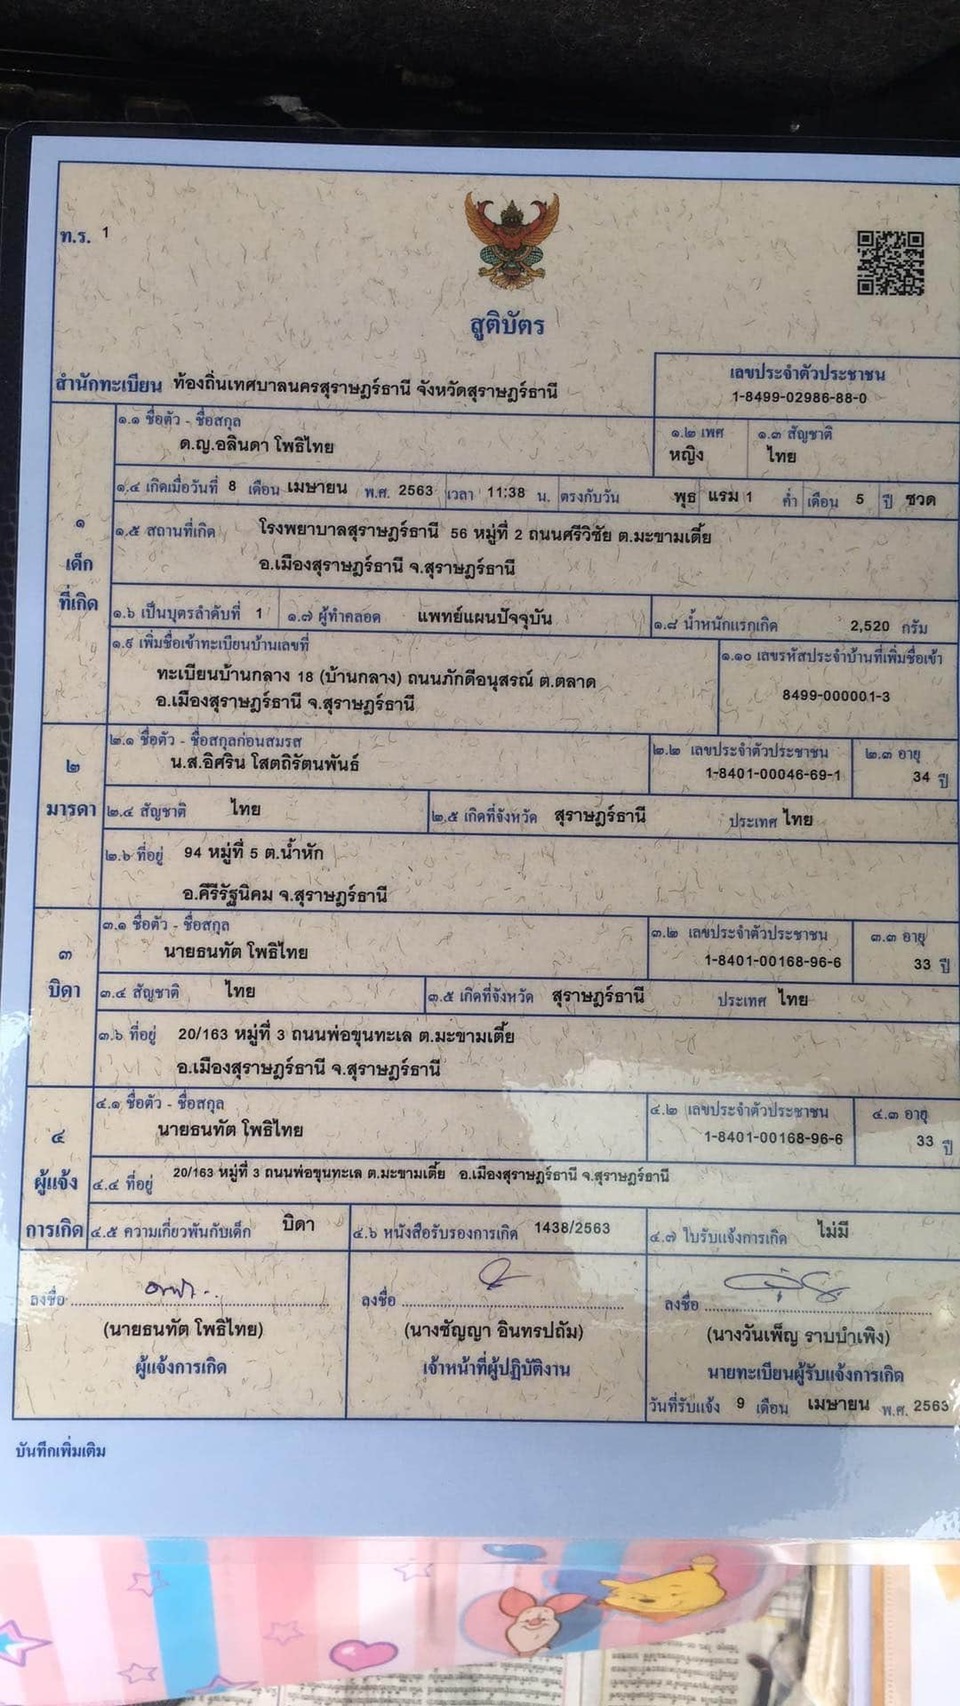 ท.ร. 1
สูติบัตร
สำนักทะเบียน ท้องถิ่นเทศบาลนครสุราษฎร์ธานี จังหวัดสุราษฎร์ธานี
เลขประจำตัวประชาชน
1-8499-02986-88-0
๑.๑ ชื่อตัว - ชื่อสกุล
ด.ญ.อลินดา โพธิไทย
๑.๒ เพศ
หญิง
๑.๓ สัญชาติ
ไทย
๑.๔ เกิดเมื่อวันที่ 8 เดือน เมษายน พ.ศ. 2563 เวลา 11:38 น. ตรงกับวัน พุธ แรม 1 ค่ำ เดือน 5 ปี ชวด
๑
เด็ก
ที่เกิด
๑.๕ สถานที่เกิด โรงพยาบาลสุราษฎร์ธานี 56 หมู่ที่ 2 ถนนศรีวิชัย ต.มะขามเตี้ย
อ.เมืองสุราษฎร์ธานี จ.สุราษฎร์ธานี
๑.๖ เป็นบุตรลำดับที่ 1 ๑.๗ ผู้ทำคลอด แพทย์แผนปัจจุบัน ๑.๘ น้ำหนักแรกเกิด 2,520 กรัม
๑.๙ เพิ่มชื่อเข้าทะเบียนบ้านเลขที่
ทะเบียนบ้านกลาง 18 (บ้านกลาง) ถนนภักดีอนุสรณ์ ต.ตลาด
อ.เมืองสุราษฎร์ธานี จ.สุราษฎร์ธานี
๑.๑๐ เลขรหัสประจำบ้านที่เพิ่มชื่อเข้า
8499-000001-3
๒
มารดา
๒.๑ ชื่อตัว - ชื่อสกุลก่อนสมรส
น.ส.อิศริน โสตถิรัตนพันธ์
๒.๒ เลขประจำตัวประชาชน
1-8401-00046-69-1
๒.๓ อายุ
34 ปี
๒.๔ สัญชาติ ไทย ๒.๕ เกิดที่จังหวัด สุราษฎร์ธานี ประเทศ ไทย
๒.๖ ที่อยู่ 94 หมู่ที่ 5 ต.น้ำหัก
อ.คีรีรัฐนิคม จ.สุราษฎร์ธานี
๓
บิดา
๓.๑ ชื่อตัว - ชื่อสกุล
นายธนทัต โพธิไทย
๓.๒ เลขประจำตัวประชาชน
1-8401-00168-96-6
๓.๓ อายุ
33 ปี
๓.๔ สัญชาติ ไทย ๓.๕ เกิดที่จังหวัด สุราษฎร์ธานี ประเทศ ไทย
๓.๖ ที่อยู่ 20/163 หมู่ที่ 3 ถนนพ่อขุนทะเล ต.มะขามเตี้ย
อ.เมืองสุราษฎร์ธานี จ.สุราษฎร์ธานี
๔
ผู้แจ้ง
การเกิด
๔.๑ ชื่อตัว - ชื่อสกุล
นายธนทัต โพธิไทย
๔.๒ เลขประจำตัวประชาชน
1-8401-00168-96-6
๔.๓ อายุ
33 ปี
๔.๔ ที่อยู่ 20/163 หมู่ที่ 3 ถนนพ่อขุนทะเล ต.มะขามเตี้ย อ.เมืองสุราษฎร์ธานี จ.สุราษฎร์ธานี
๔.๕ ความเกี่ยวพันกับเด็ก บิดา ๔.๖ หนังสือรับรองการเกิด 1438/2563 ๔.๗ ใบรับแจ้งการเกิด ไม่มี
ลงชื่อ
(นายธนทัต โพธิไทย)
ผู้แจ้งการเกิด
ลงชื่อ
(นางชัญญา อินทรปถัม)
เจ้าหน้าที่ผู้ปฏิบัติงาน
ลงชื่อ
(นางวันเพ็ญ ราบบำเพิง)
นายทะเบียนผู้รับแจ้งการเกิด
วันที่รับแจ้ง 9 เดือน เมษายน พ.ศ. 2563
บันทึกเพิ่มเติม